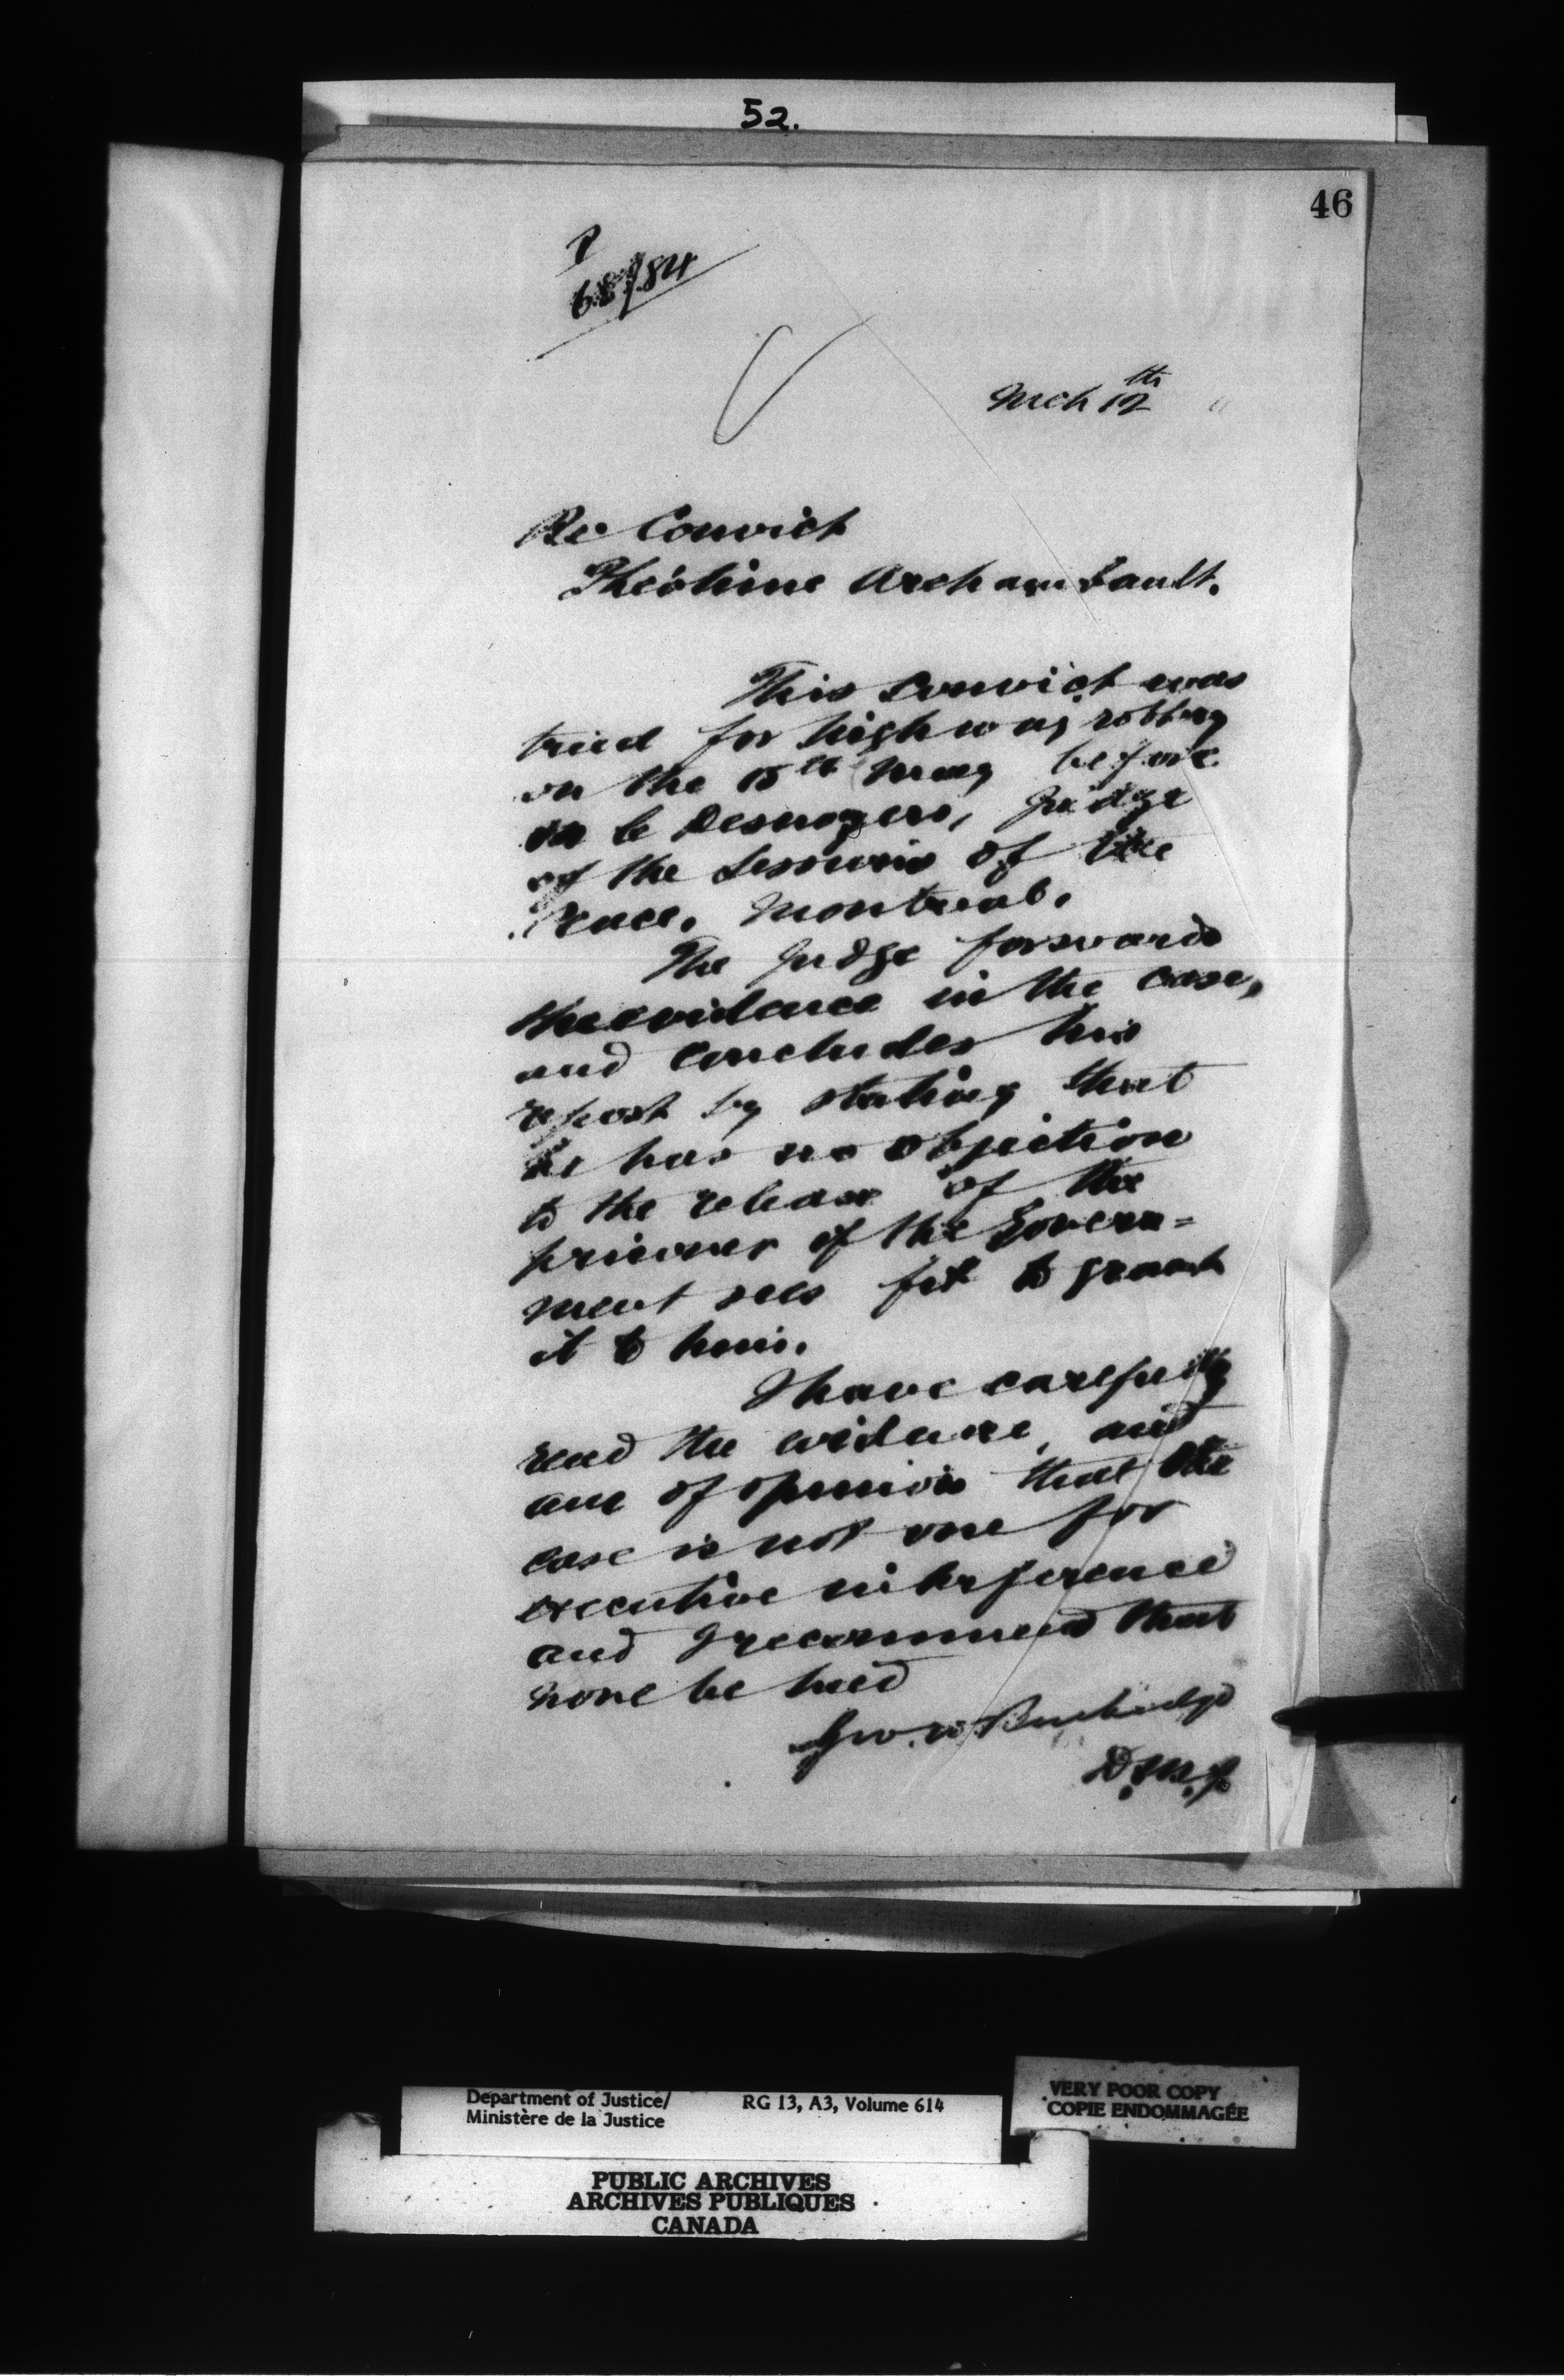 52.
46
P
68/84
Mch 12th
Re Convict
Théotime Archambault.
This convict was
tried for highway robbery
on the 15th May before
Desnoyers, Judge
of the Sessions of the
Peace, Montreal.
The Judge forwards
the evidence in the case,
and concludes his
report by stating that
he has no objection
to the release of the
prisoner if the Govern=
ment sees fit to grant
it to him.
I have carefully
read the evidence, and
am of opinion that the
case is not one for
executive interference
and I recommend that
none be had
Geo. W. Burbidge
D.M.J.
Department of Justice/
Ministère de la Justice
RG 13, A3, Volume 614
VERY POOR COPY
COPIE ENDOMMAGÉE
PUBLIC ARCHIVES
ARCHIVES PUBLIQUES
CANADA